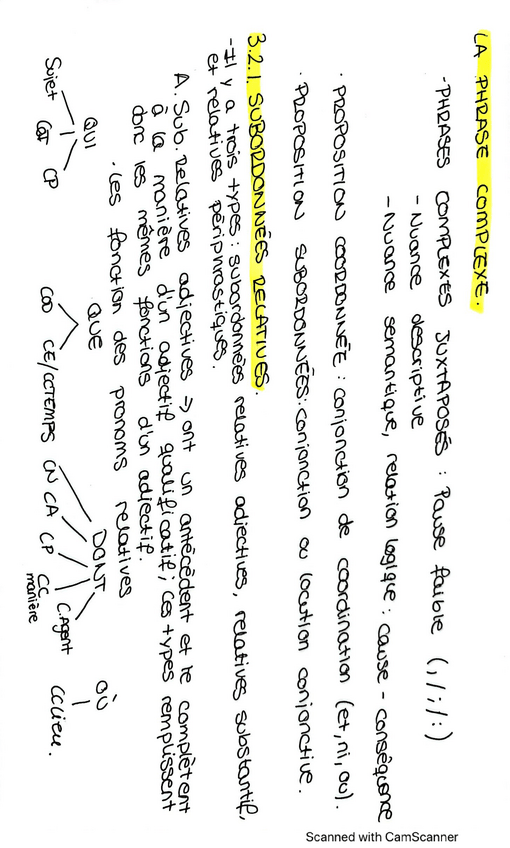 LA PHRASE COMPLEXE.
-PHRASES COMPLEXES JUXTAPOSÉS : Pause faible (, / ; / : )
- Nuance descriptive
- Nuance semantique, relation logique : cause - conséquence
· PROPOSITION COORDONNÉE : conjonction de coordination (et, ni, ou).
· PROPOSITION SUBORDONNÉES: conjonction ou locution conjonctive.
3.2.1. SUBORDONNÉES RELATIVES.
-Il y a trois types : subordonnées relatives adjectives, relatives substantif,
et relatives périphrastiques.
A. Sub. Relatives adjectives => ont un antécédent et le complètent
à la manière d'un adjectif qualificatif; ces types remplissent
donc les mêmes fonctions d'un adjectif.
· Les fonction des pronoms relatives
QUI QUE DONT OÙ
Sujet CP COD CE/CCTEMPS CN CA CP CC manière C.Agent CClieu.
Scanned with CamScanner